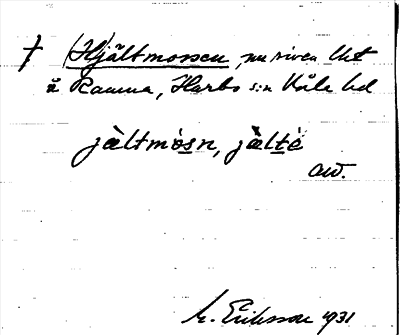 † (H)jältmossen, nu riven lht
å Ramna, Harbo s:n Våla hd
jàltmòsn, jàltè
aw.
M. Eriksson 1931